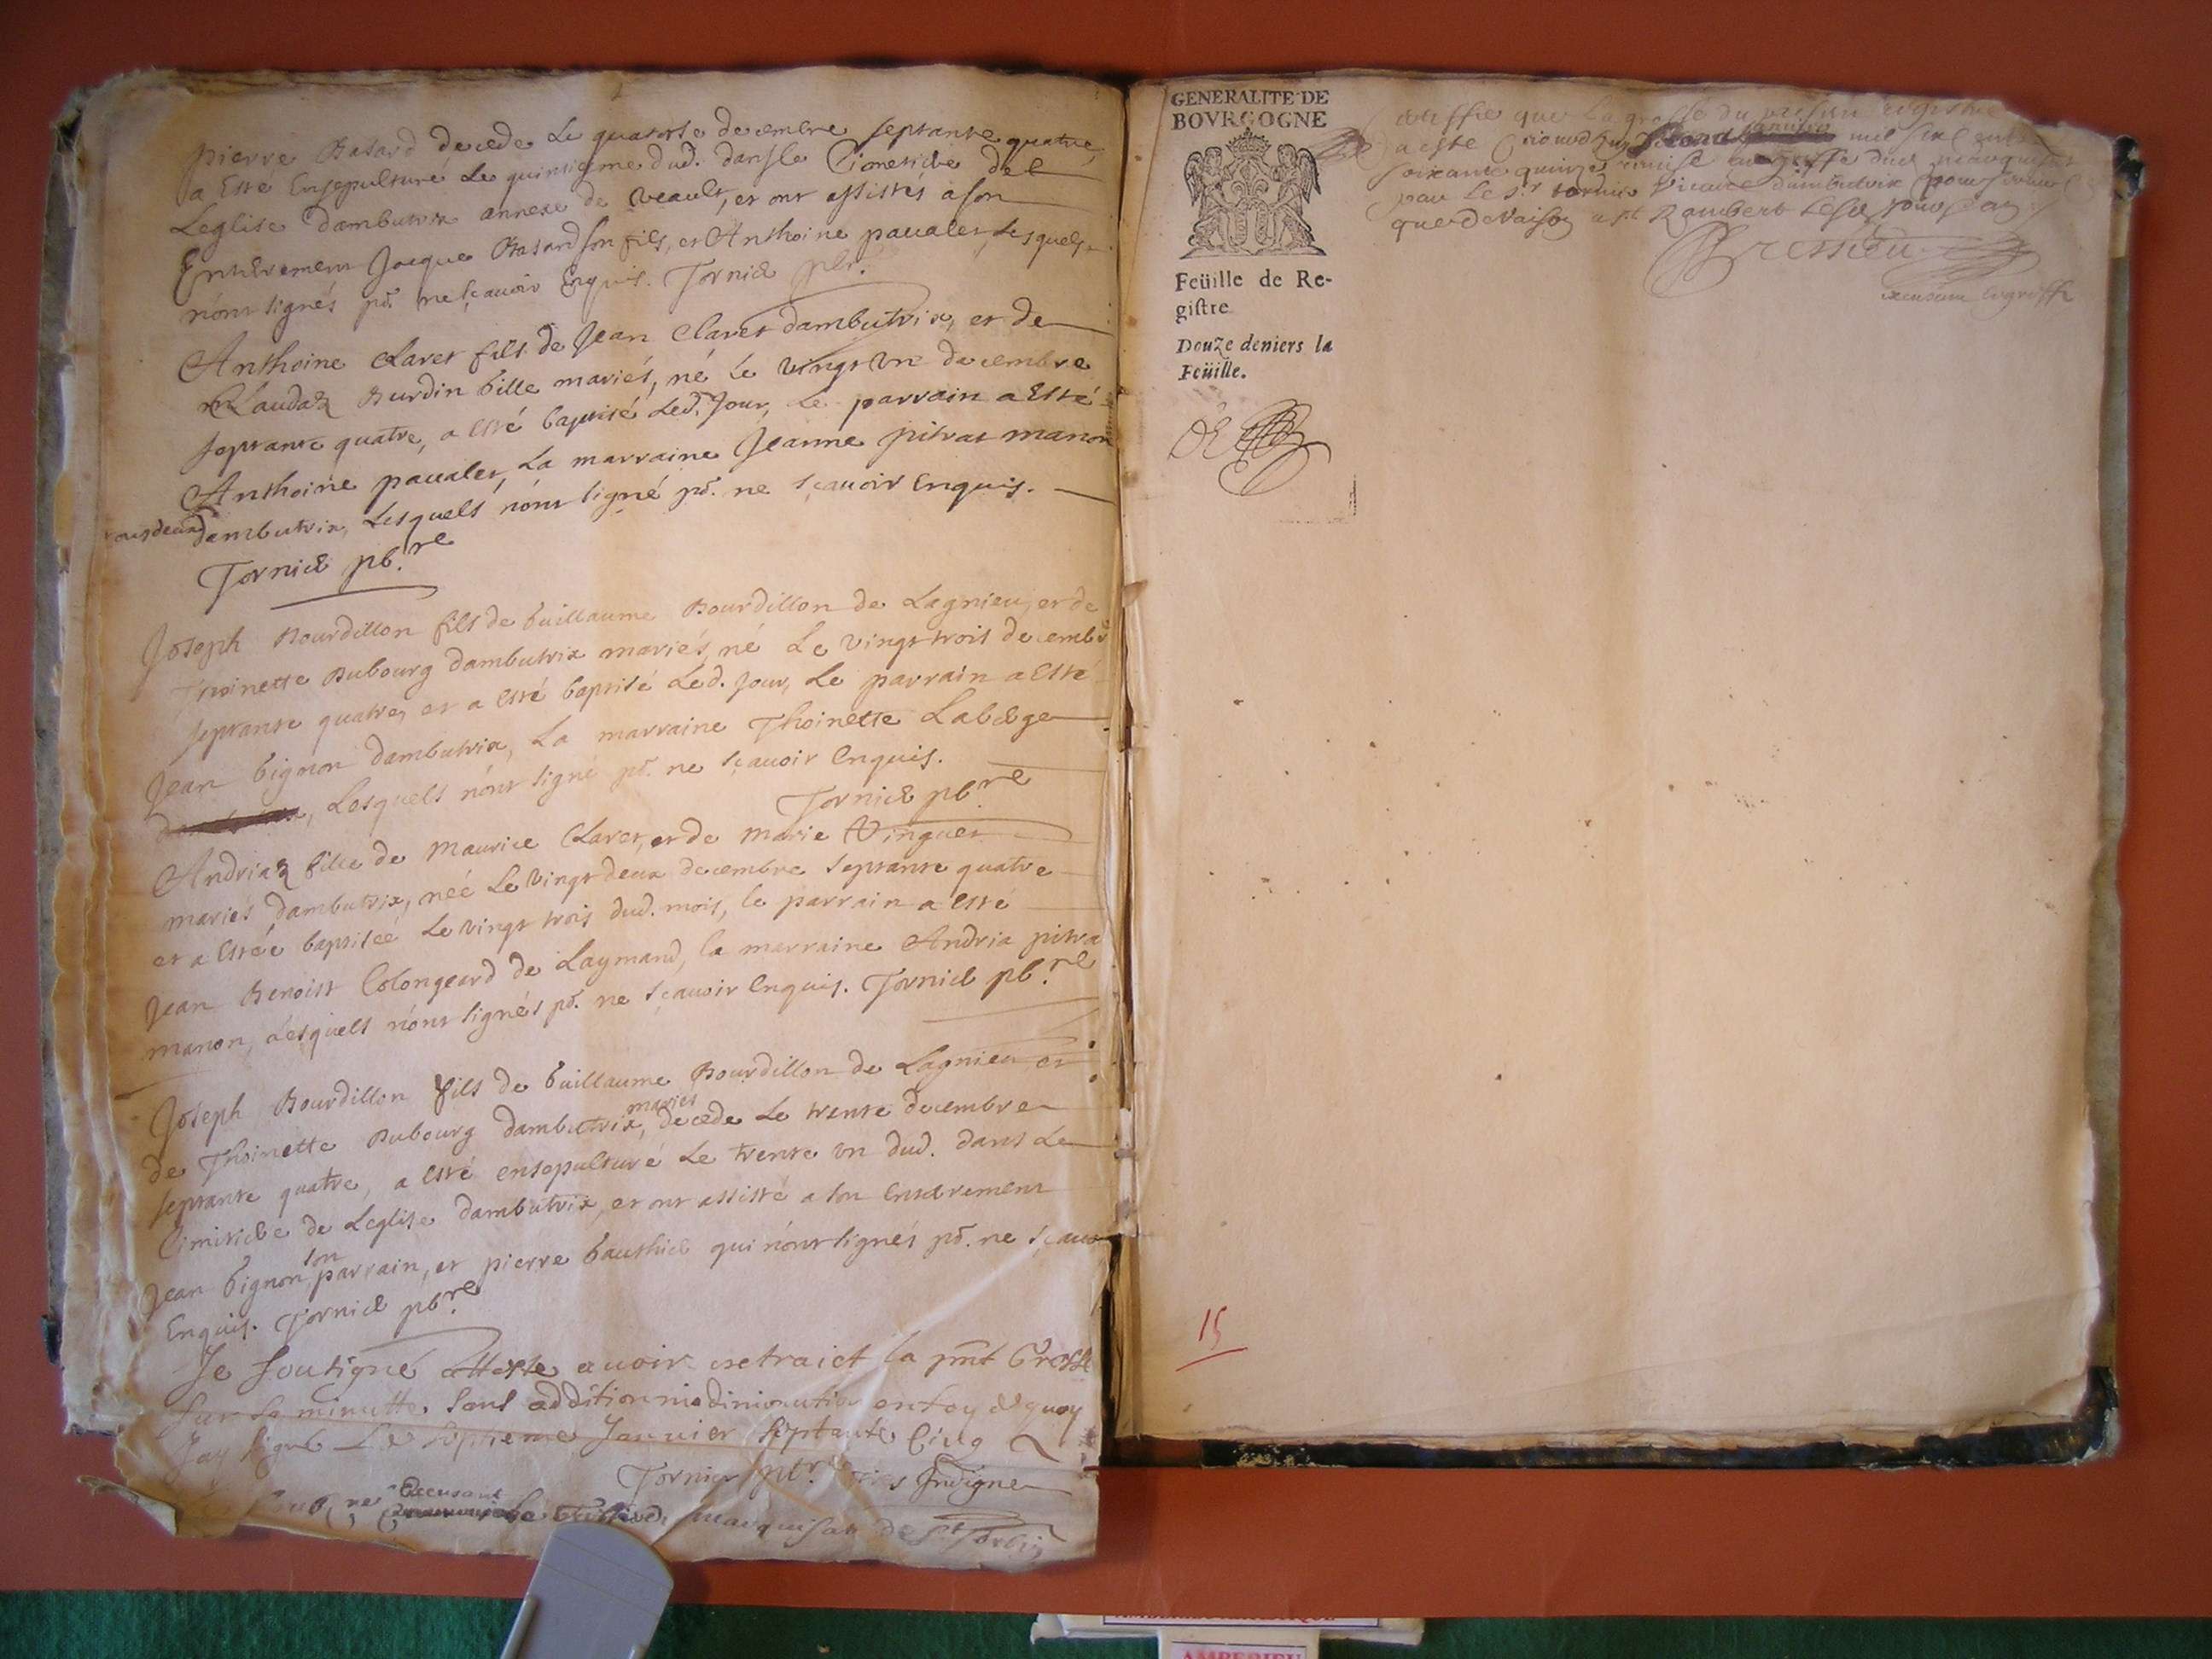 pierre Basard decede Le quatorse decembre septante quatre,
a Esté Ensepulturé Le quinsieme dud. dansle Cimetiere de
Leglise dambutrix annexe de veault, et ont assistés a son
Enterement Jacque Basard son fils, et Anthoine paualet, Lesquels
n'ont signés pr. ne sçauoir Enquis. Tornier pbr.
Anthoine Claret fils de Jean Claret dambutrix, et de
Claudaz Burdin fille mariés, né le vingt vn decembre
septante quatre, a esté baptisé Led. Jour, Le parrain a Esté
Anthoine paualet, La marraine Jeanne pitrat manon
tousdeux dambutrix, Lesquels n'ont signé pr. ne sçauoir Enquis.
Tornier pb.re
Joseph Bourdillon fils de Guillaume Bourdillon de Lagnieu, et de
Thoinette Dubourg dambutrix mariés, né Le vingt trois decembr
septante quatre, et a esté baptisé Led. Jour, Le parrain a Esté
Jean Gignon dambutrix, La marraine Thoinette Laberge
, Lesquels n'ont signé pr. ne sçauoir Enquis.
Tornier pb.re
Andriaz fille de Maurice Claret, et de Marie Vinguet
mariés dambutrix, néé Le Vingt deux decembre septante quatre
et a Estée baptiséé Le vingt trois dud. mois, le parrain a esté
Jean Benoist Colongeard de Laymand, la marraine Andria pitra
manon, Lesquels n'ont signés pr. ne sçauoir Enquis. Tornier pb.re
Joseph Bourdillon fils de Guillaume Bourdillon de Lagnieu et
de Thoinette Dubourg dambutrix, mariés decede Le trente decembre
septante quatre, a Esté ensepulturé Le trente vn dud. dans Le
Cimitiere de Leglise dambutrix, et ont assisté a son Enterement
Jean Gignon son parrain, et pierre Gauthier qui n'ont signés pr. ne sçauo
Enquis. Tornier pb.re
Je soutigné atteste auoir extraict la pnt Grosse
sur sa minutte sans addition ni diminution en foy de quoy
Jay signé Le Janvier septante Cinq
Tornier pbr. Indigne
Excusant marquisat de St Sorlin
GENERALITE DE
BOVRGOGNE
Feüille de Re-
gistre
Douze deniers la
Feüille.
que la grosse du present registre
a esté cejourdhuy mil six cents
soixante quinze remise au greffe dud marquisat
par le Sr tornier Vicaire dambutrix
St Rambert
Bressieu
15
AMBERIEU